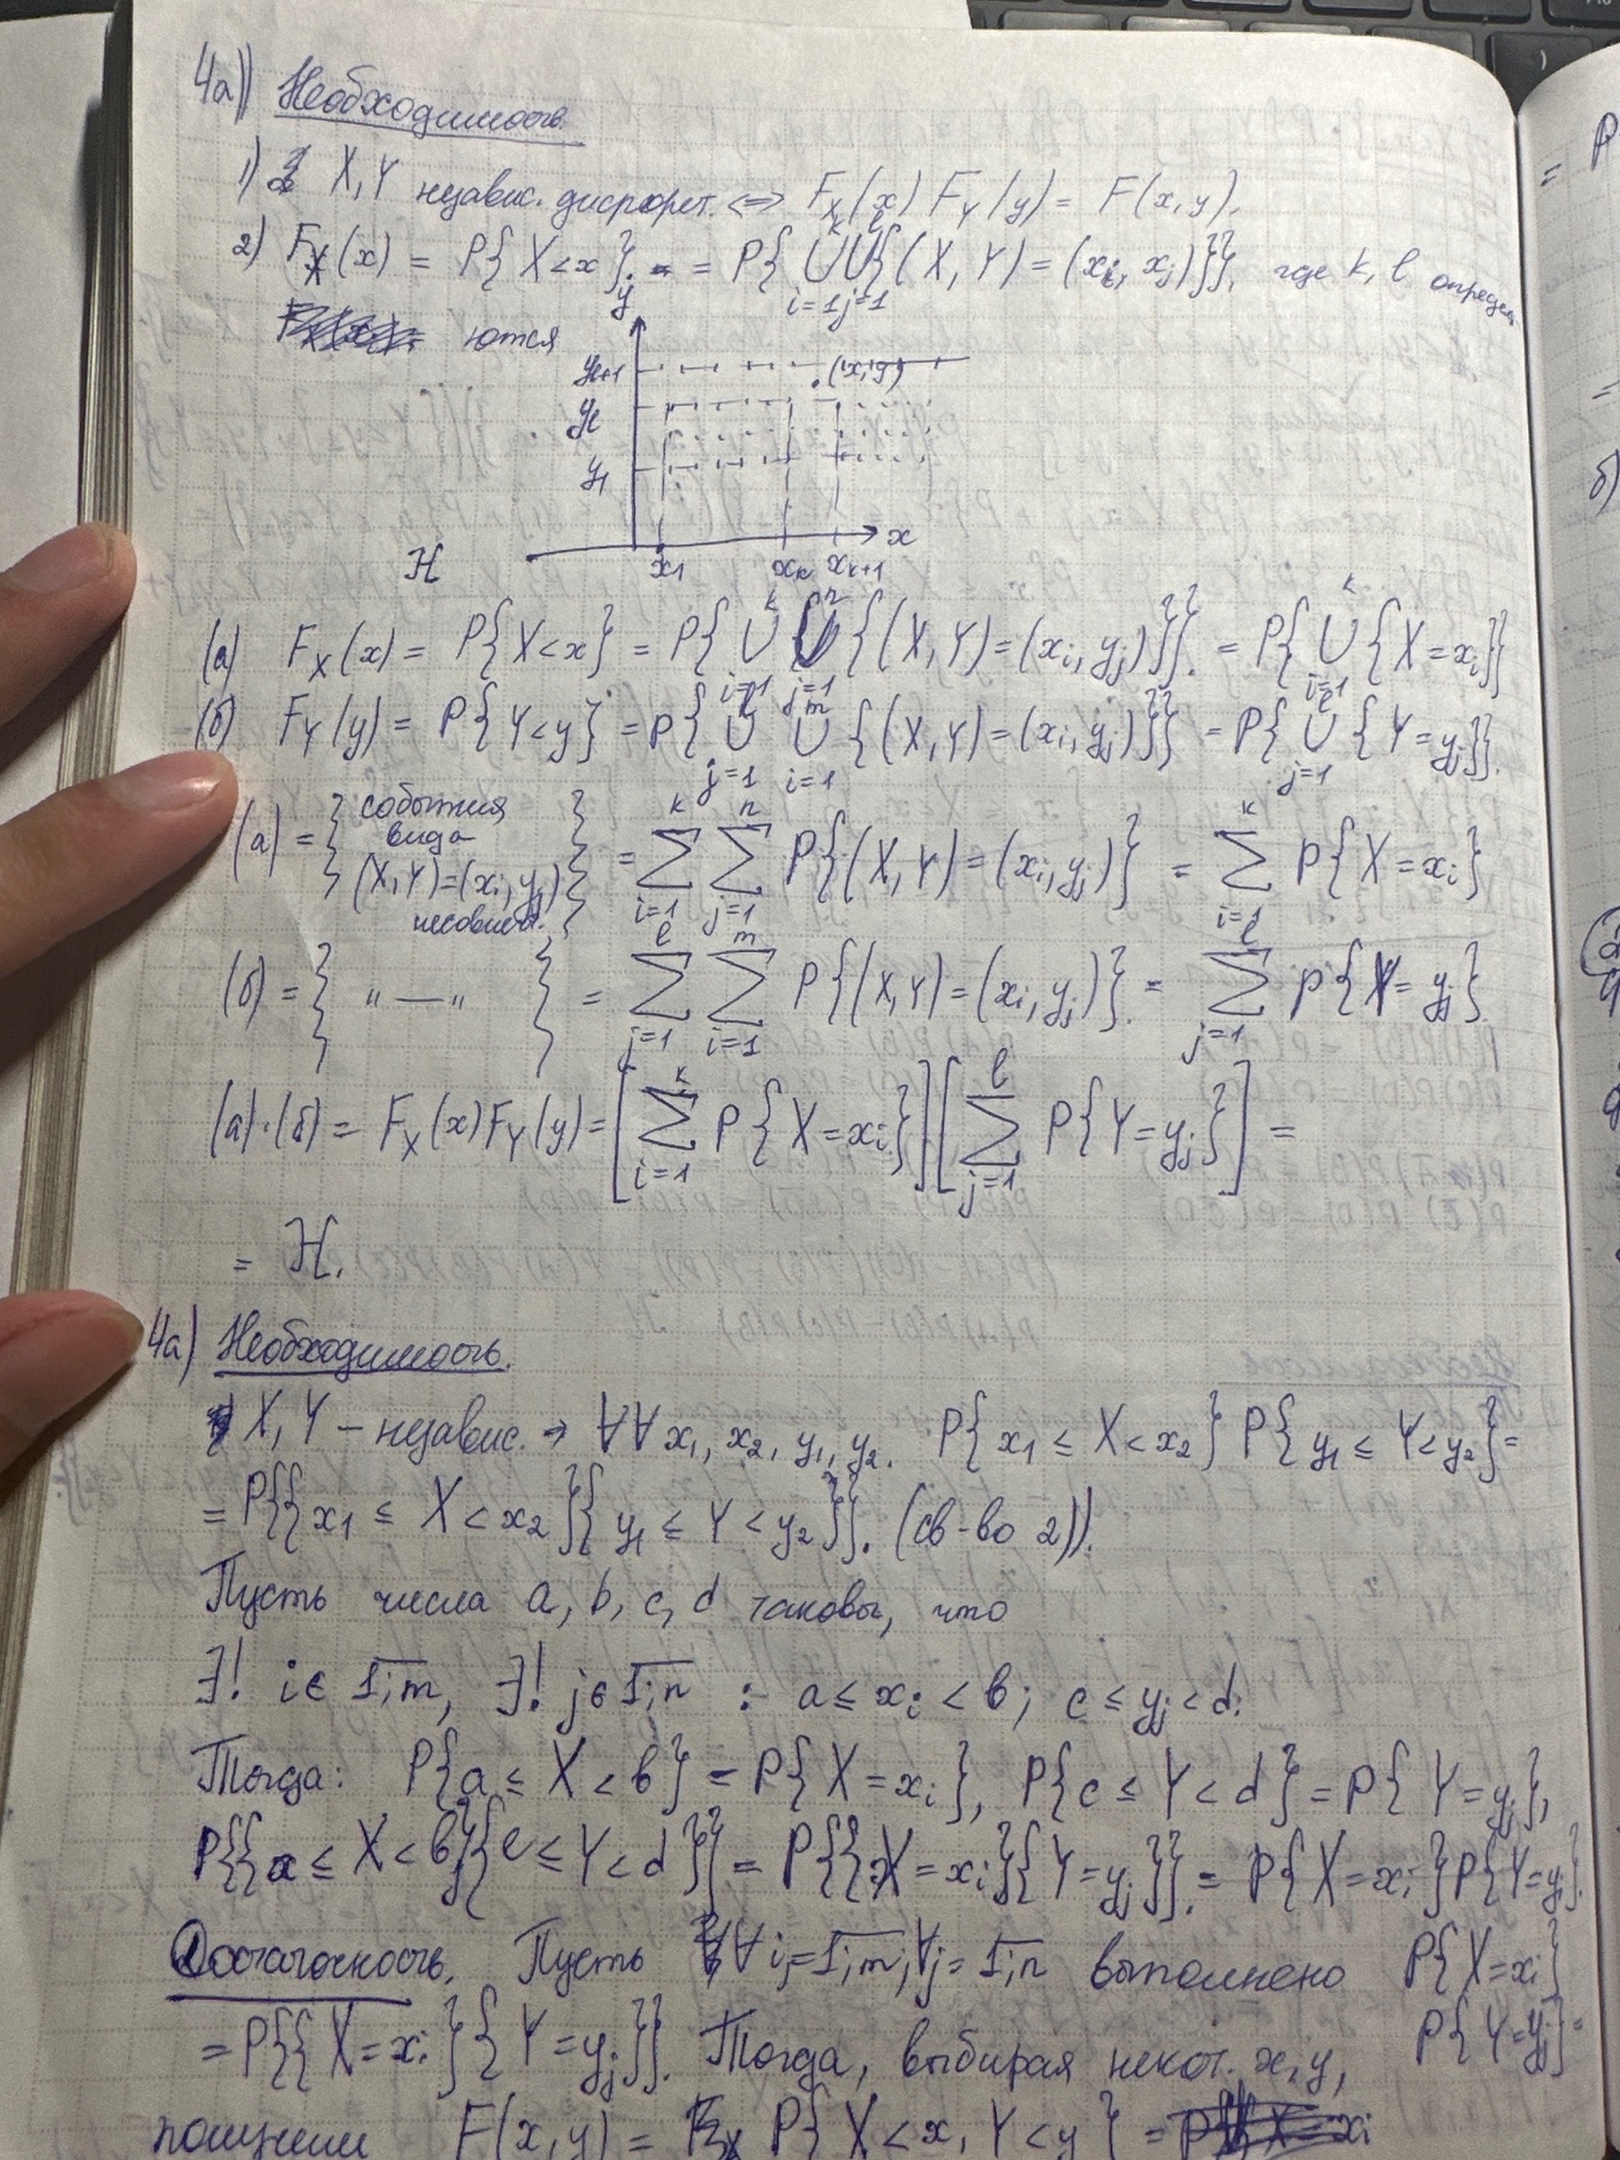 4а) Необходимость.
1) X, Y независ. дискрет. ⇔ F_X(x) F_Y(y) = F(x,y).
2) F_X(x) = P{X<x} = P{⋃_{i=1}^{k}⋃_{j=1}^{l}{(X,Y)=(x_i, x_j)}}, где k, l определя
ются
y
y_{l+1}
(x,y)
y_l
y_1
x
x_1 x_k x_{k+1}
H
(а) F_X(x) = P{X<x} = P{⋃_{i=1}^{k}⋃_{j=1}^{n}{(X,Y)=(x_i,y_j)}}. = P{⋃_{i=1}^{k}{X=x_i}}
(б) F_Y(y) = P{Y<y} = P{⋃_{j=1}^{l}⋃_{i=1}^{m}{(X,Y)=(x_i,y_j)}} = P{⋃_{j=1}^{l}{Y=y_j}}.
(а) = {события вида (X,Y)=(x_i,y_j) несовмест.} = ∑_{i=1}^{k}∑_{j=1}^{n} P{(X,Y)=(x_i,y_j)} = ∑_{i=1}^{k} P{X=x_i}
(б) = { "—" } = ∑_{j=1}^{l}∑_{i=1}^{m} P{(X,Y)=(x_i,y_j)}. = ∑_{j=1}^{l} P{Y=y_j}.
(а)·(б) = F_X(x)F_Y(y) = [∑_{i=1}^{k} P{X=x_i}][∑_{j=1}^{l} P{Y=y_j}] =
= H.
4а) Необходимость.
X, Y – независ. ⇒ ∀∀ x_1, x_2, y_1, y_2. P{x_1 ≤ X < x_2} P{y_1 ≤ Y < y_2} =
= P{{x_1 ≤ X < x_2}{y_1 ≤ Y < y_2}}. (св-во 2)).
Пусть числа a, b, c, d таковы, что
∃! i ∈ 1;m, ∃! j ∈ 1;n : a ≤ x_i < b; c ≤ y_j < d.
Тогда: P{a ≤ X < b} = P{X = x_i}, P{c ≤ Y < d} = P{Y = y_j},
P{{a ≤ X < b}{c ≤ Y < d}} = P{{X = x_i}{Y = y_j}}. = P{X = x_i}P{Y = y_j}.
Достаточность. Пусть ∀ i = 1;m, ∀j = 1;n выполнено P{X=x_i}
P{Y=y_j} =
= P{{X = x_i}{Y = y_j}}. Тогда, выбирая некот. x, y,
получим F(x,y) = P{X < x, Y < y} =